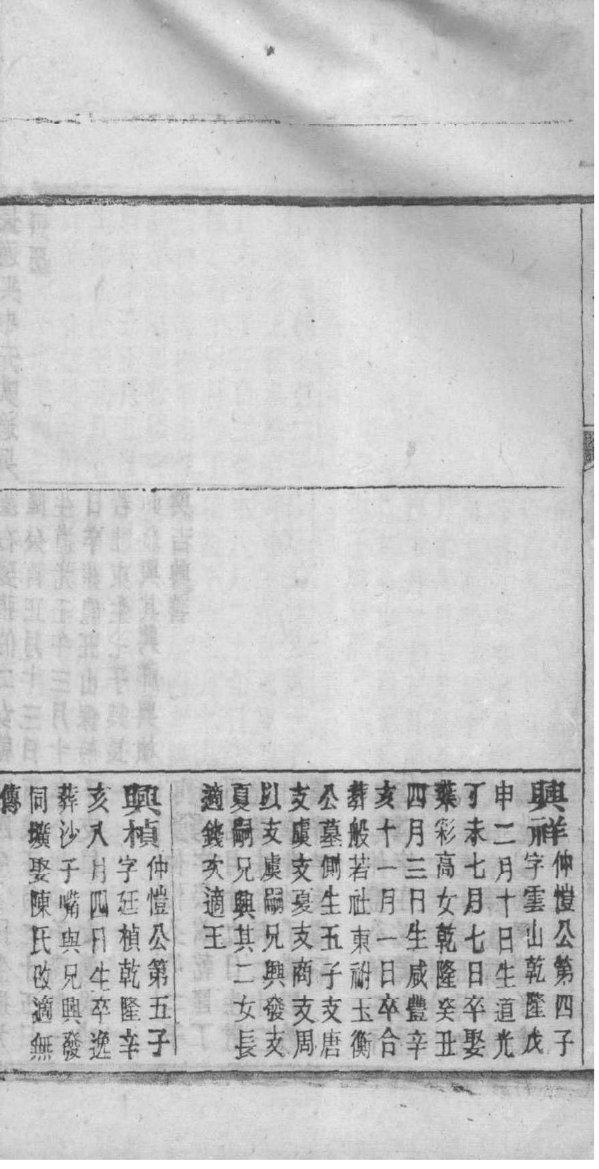 興祥仲愷公第四子
字雲山乾隆戊
申二月十日生道光
丁未七月七日卒娶
葉彩高女乾隆癸丑
四月三日生咸豐辛
亥十一月一日卒合
葬般若社東祔玉衡
公墓側生五子支唐
支虞支夏支商支周
以支虞嗣兄興發支
夏嗣兄興其二女長
適錢次適王
興楨仲愷公第五子
字廷楨乾隆辛
亥八月四日生卒逸
葬沙子嘴與兄興發
同壙娶陳氏改適無
傳